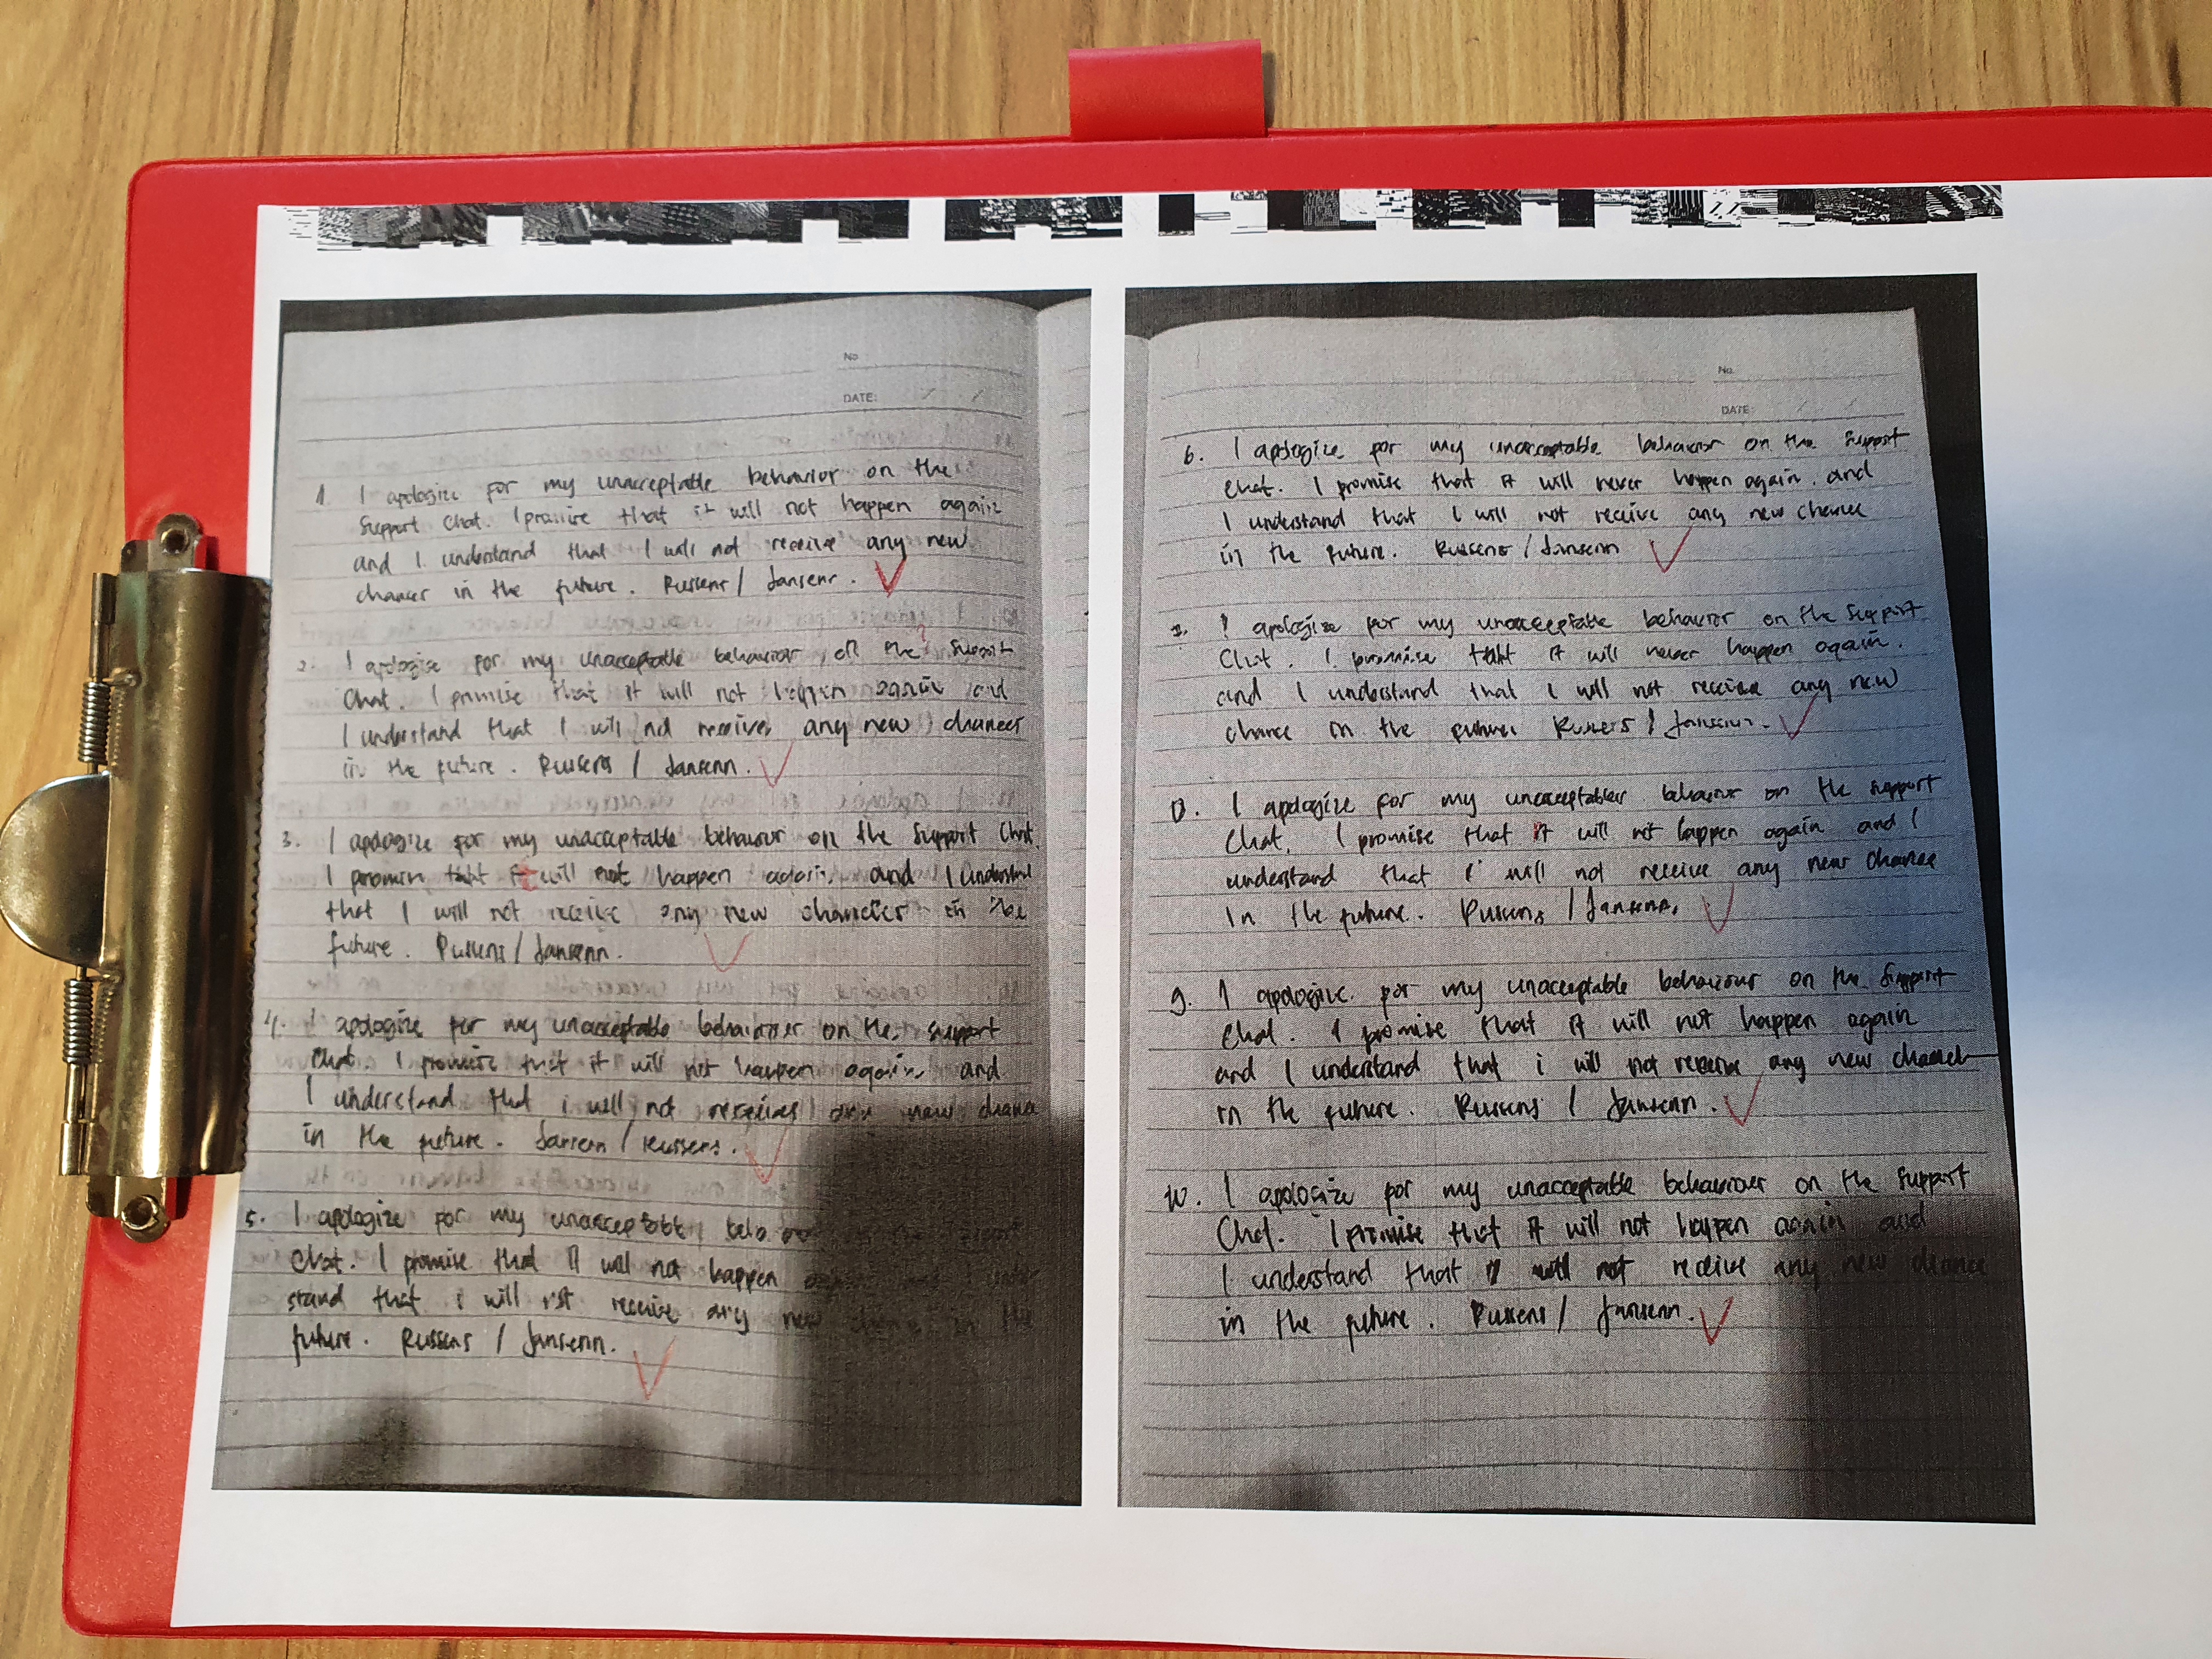 No
DATE:
1. I apologize for my unacceptable behavior on the
support chat. I promise that it will not happen again
and I understand that I will not receive any new
chances in the future. Russens / Jansenn.
2. I apologize for my unacceptable behavior on the support
chat. I promise that it will not happen again and
I understand that I will not receive any new chances
in the future. Russens / Jansenn.
3. I apologize for my unacceptable behaviour on the support chat.
I promise that it will not happen again and I understand
that I will not receive any new chances in the
future. Russens / Jansenn.
4. I apologize for my unacceptable behaviour on the support
chat. I promise that it will not happen again and
I understand that i will not receive any new chance
in the future. Jansenn / Russens.
5. I apologize for my unacceptable
chat. I promise that it will not happen
stand that i will not receive any new in the
future. Russens / Jansenn.
No.
DATE:
6. I apologize for my unacceptable behavior on the support
chat. I promise that it will never happen again. and
I understand that I will not receive any new chance
in the future. Russens / Jansenn
7. I apologize for my unacceptable behavior on the support
chat. I promise that it will never happen again.
and I understand that I will not receive any new
chance in the future. Russens / Jansenn.
8. I apologize for my unacceptable behavior on the support
chat. I promise that it will not happen again and I
understand that i will not receive any new chance
in the future. Russens / Jansenn.
9. I apologize for my unacceptable behaviour on the support
chat. I promise that it will not happen again
and I understand that i will not receive any new chance
in the future. Russens / Jansenn.
10. I apologize for my unacceptable behaviour on the support
chat. I promise that it will not happen again and
I understand that I will not receive any new chance
in the future. Russens / Jansenn.